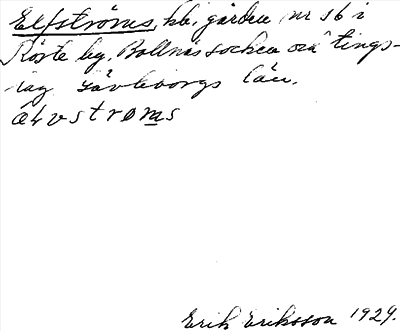 Elfströms, hb. gården nr 16 i
Röste by, Bollnäs socken och tings-
lag Gävleborgs län.
ælvstrøms
Erik Eriksson 1929.